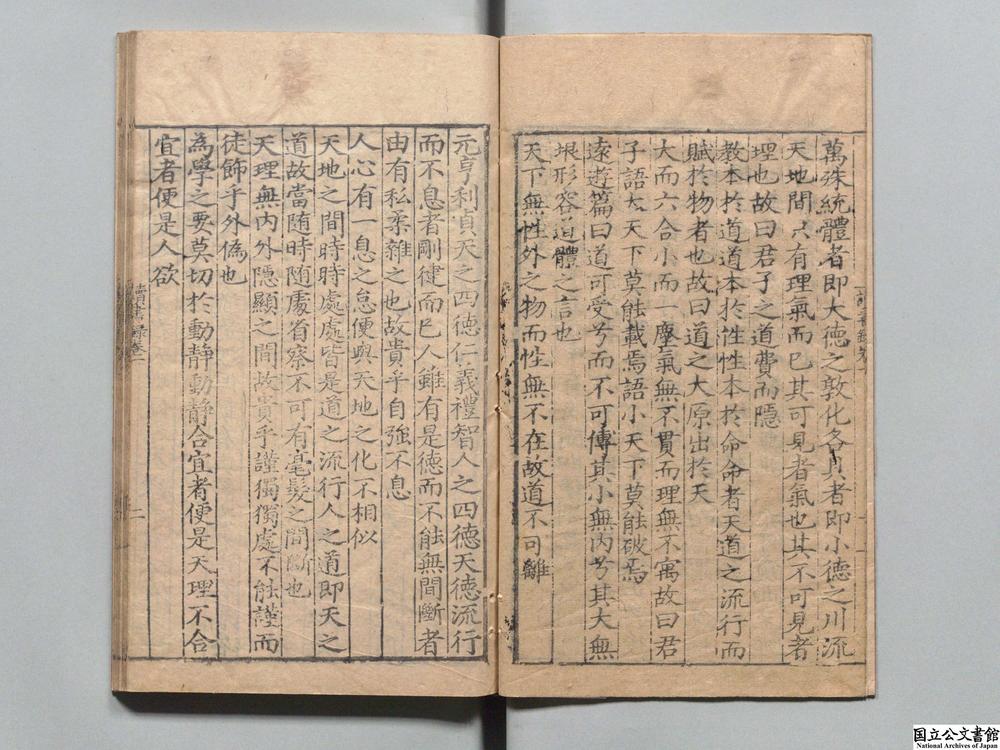 萬殊統體者即大德之敦化各具者即小德之川流
天地間只有理氣而已其可見者氣也其不可見者
理也故曰君子之道費而隱
教本於道道本於性性本於命命者天道之流行而
賦於物者也故曰道之大原出於天
大而六合小而一塵氣無不貫而理無不寓故曰君
子語大天下莫能載焉語小天下莫能破焉
遠遊篇曰道可受兮而不可傳其小無内兮其大無
垠形容道體之言也
天下無性外之物而性無不在故道不可離
元亨利貞天之四德仁義禮智人之四德天德流行
而不息者剛健而已人雖有是德而不能無間斷者
由有私柔雜之也故貴乎自強不息
人心有一息之怠便與天地之化不相似
天地之間時時處處皆是道之流行人之道即天之
道故當隨時随處省察不可有毫髮之間斷也
天理無内外隱顯之間故貴乎謹獨獨處不能謹而
徒飾乎外偽也
為學之要莫切於動靜動靜合宜者便是天理不合
宜者便是人欲
讀書錄卷一
二
国立公文書館
National Archives of Japan